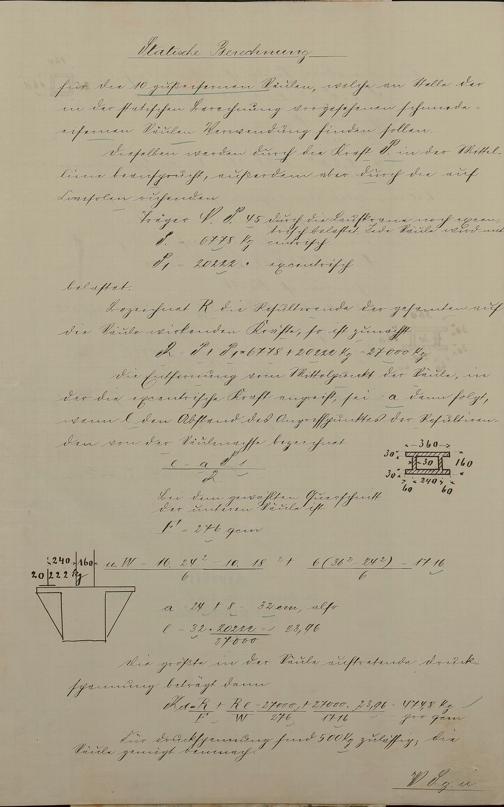 Statische Berechnung
für die 10 gußeisernen Säulen, welche an Stelle der
in der statischen Berechnung vorgesehenen schmiede-
eisernen Säulen Verwendung finden sollen.
Dieselben werden durch die Kraft P in der Mittel-
linie beansprucht, außerdem aber durch die auf
Consolen ruhenden
Träger N P 45 durch die Laufkrane noch excen-
trisch belastet. Jede Säule wird mit
P = 6778 Kg centrisch
P1 = 20222 " excentrisch
belastet.
Bezeichnet R die Resultirende der gesamten auf
die Säule wirkenden Kräfte, so ist zunächst
R = P + P1 = 6778 + 20222 Kg = 27000 Kg
die Entfernung vom Mittelpunkt der Säule, in
der die excentrische Kraft angreift, sei = a dann folgt,
wenn l den Abstand des Angriffspunktes der Resultiren-
den von der Säulenachse bezeichnet
l = a P1
R
360
30
30
160
30
60 240 60
Bei dem gewählten Querschnitt
der unteren Säule ist
F = 276 qcm
240 160
20222 Kg
u. W = 16 . 24² - 10 . 18² + 6 (36² - 24²) = 1716
6 6
a = 24 + 8 = 32 cm, also
l = 32 . 20222 = 23,96
27000
Die größte in der Säule auftretende Druck-
spannung beträgt dann
Kd = R + R l = 27000 + 27000 . 23,96 = 474,8 Kg
F W 276 1716 per qcm
Für Druckspannung sind 500 Kg zulässig, die
Säule genügt demnach.